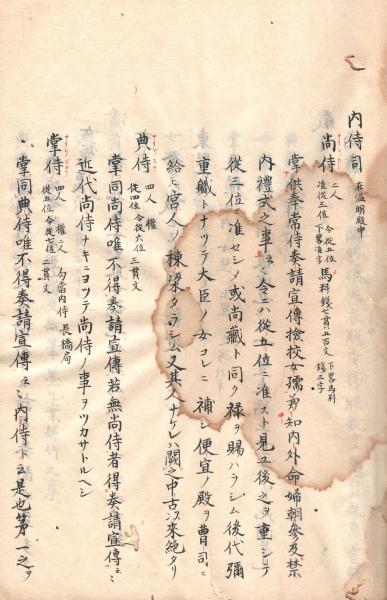 内侍司 在温明殿中
尚侍 二人 令従五位 准従三位 下畧准字 馬料銭七貫五百文 下畧馬料銭三字
掌供奉常侍奏請宣傳撿校女孺兼知内外命婦朝參及禁
内禮式之事云々令ニハ従五位ニ准スト見ユ後之ヲ重シテ
従三位ニ准セシメ或尚藏ト同ク禄ヲ賜ハラシム後代彌
重職トナツテ大臣ノ女コレニ補シ便宜ノ殿ヲ曹司ニ
給ヒ宮人ノ棟梁タラシム又其人ナケレハ闕之中古以來絶タリ
典侍 四人 權 従四位 令従六位 三貫文
掌同尚侍唯不得奏請宣傳若無尚侍者得奏請宣傳云々
近代尚侍ナキニヨツテ尚侍ノ事ヲツカサトルヘシ
掌侍 四人 權二人 勾當内侍 長橋局 従五位 令従七位 三貫文
掌同典侍唯不得奏請宣傳云々内侍下云是也第一之ヲ